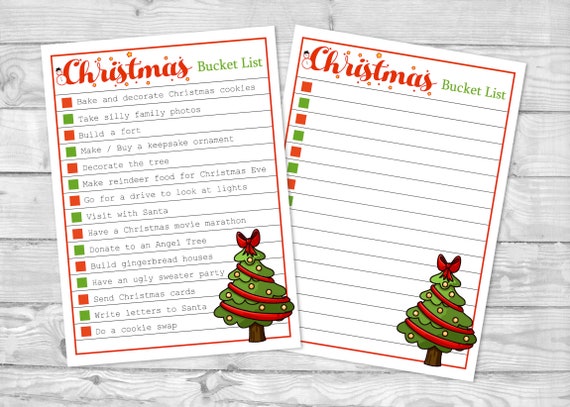 Christmas Bucket List
Bake and decorate Christmas cookies
Take silly family photos
Build a fort
Make / Buy a keepsake ornament
Decorate the tree
Make reindeer food for Christmas Eve
Go for a drive to look at lights
Visit with Santa
Have a Christmas movie marathon
Donate to an Angel Tree
Build gingerbread houses
Have an ugly sweater party
Send Christmas cards
Write letters to Santa
Do a cookie swap
Christmas Bucket List